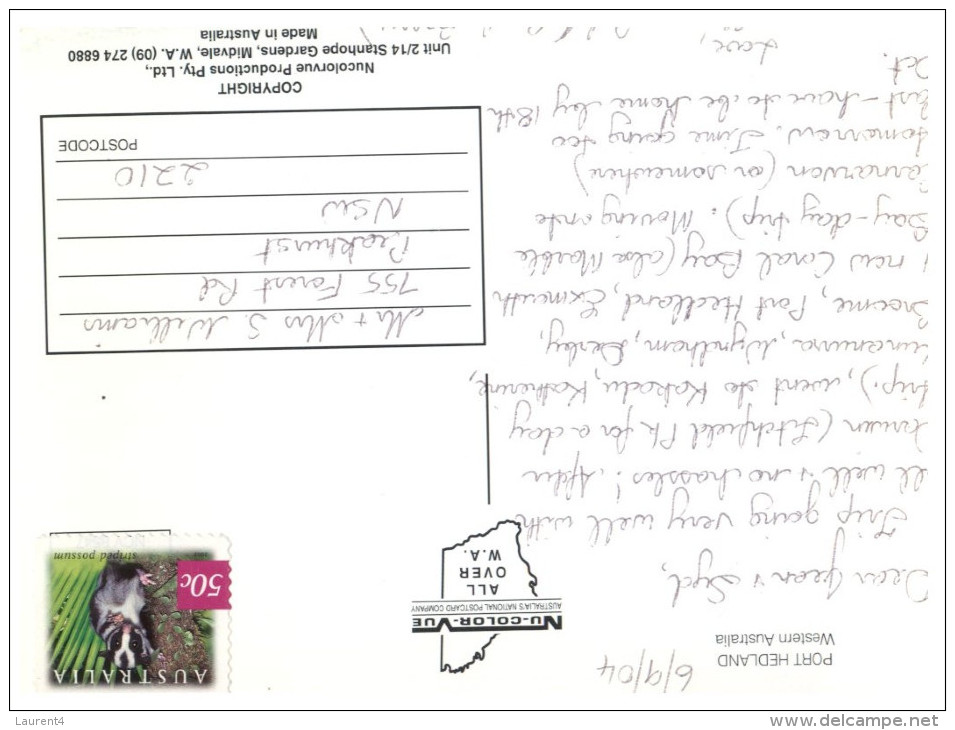 PORT HEDLAND
Western Australia
6/9/04
Dear Jean & Syd,
Trip going very well with
ll well & no hassles! After
arwin (Litchfield Pk for a day
trip), went to Kakadu, Katherine,
ununurra, Wyndham, Derby,
roome, Port Hedland, Exmouth
& now Coral Bay (also Monkie
Bay - day trip). Moving onto
arnarvon (or somewhere)
tomorrow. Time going too
ast - have to be home by 18th
Oct.
Love,
NU-COLOR-VUE
AUSTRALIA'S NATIONAL POSTCARD COMPANY
ALL
OVER
W.A.
AUSTRALIA
50c
striped possum
Mr + Mrs S. Williams
755 Forest Rd
Peakhurst
NSW
2210
POSTCODE
COPYRIGHT
Nucolorvue Productions Pty. Ltd.,
Unit 2/14 Stanhope Gardens, Midvale, W.A. (09) 274 6880
Made in Australia
Laurent4
www.delcampe.net